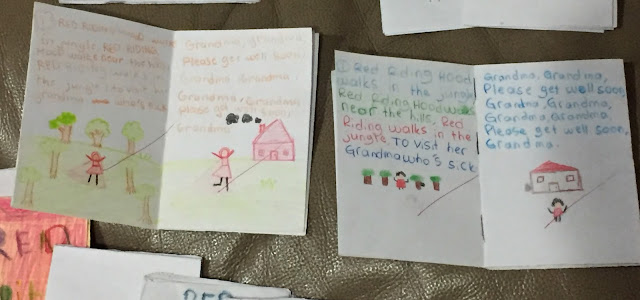 RED
in jungle, RED RIDING
HOOD walks near the hills,
RED
the jungle to visit her
grandma who's sick
Grandma, grandma
Please get well soon,
Grandma, Grandma,
Grandma, Grandma
please get well soon,
Grandma.
① Red Riding Hood
walks in the jungle
Red Riding Hood walks
near the hills, Red
Riding walks in the
jungle, TO visit her
Grandma who's sick
Grandma, Grandma,
Please get well soon,
Grandma, Grandma,
Grandma, Grandma,
Please, get well soon,
Grandma.
RED
RED